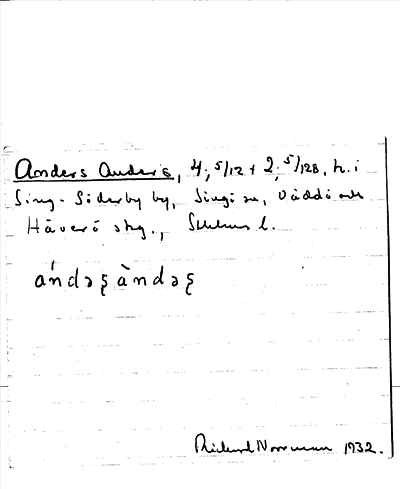 Anders Anders, 4; 5/12 + 2; 5/128, h. i
Sing-Söderby by, Singö sn, Väddö och
Häverö skg., Sthlms l.
ándəʂ àndəʂ
Rickard Norrman 1932.